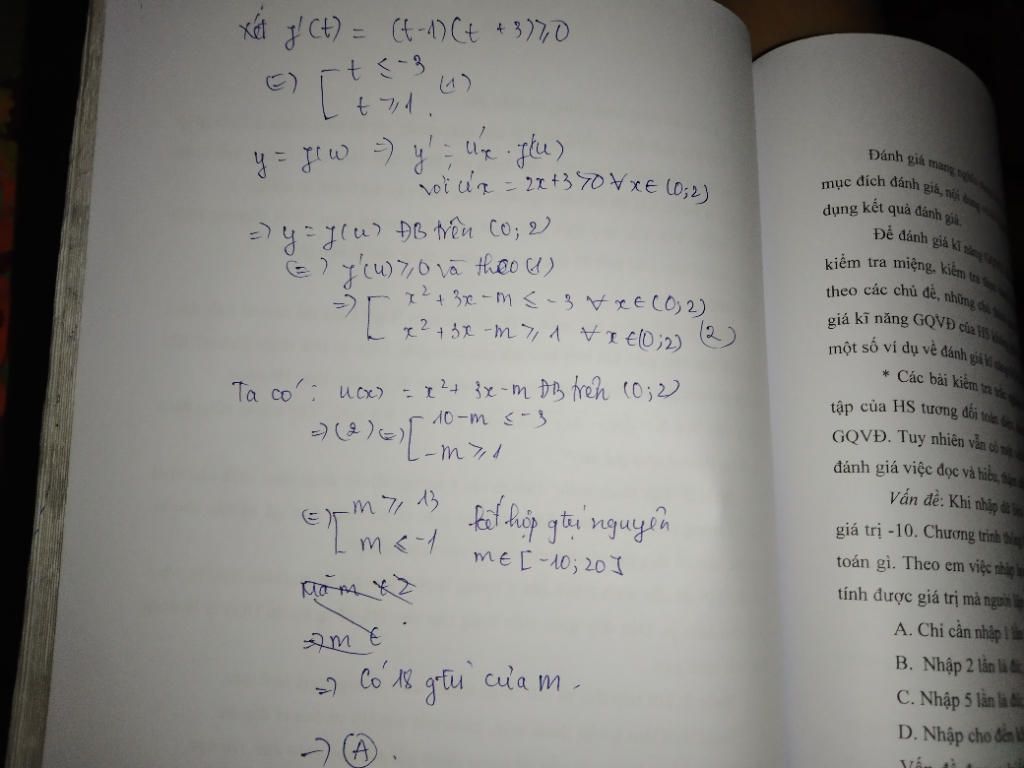 xét g'(t) = (t-1)(t+3) ≥ 0
(=) [ t ≤ -3
t ≥ 1 . (1)
y = g(u) => y' = u'x . g'(u)
với u'x = 2x+3 ≥ 0 ∀x ∈ (0;2)
=> y = g(u) ĐB trên (0;2)
(=) g'(u) ≥ 0 và theo (1)
=> [ x² + 3x - m ≤ -3 ∀ x ∈ (0;2)
x² + 3x - m ≥ 1 ∀ x ∈ (0;2) (2)
Ta có : u(x) = x² + 3x - m ĐB trên (0;2)
=> (2) (=) [ 10 - m ≤ -3
-m ≥ 1
(=) [ m ≥ 13
m ≤ -1
kết hợp gtrị nguyên
m ∈ [-10; 20]
mà m ∈ Z
=> m ∈
=> Có 18 gtrị của m .
-> (A) .
Đánh giá mang
mục đích đánh giá, nội dung
dụng kết quả đánh giá.
Để đánh giá kĩ năng
kiểm tra miệng, kiểm tra
theo các chủ đề, những
giá kĩ năng GQVĐ của HS
một số ví dụ về đánh giá kĩ
* Các bài kiểm tra
tập của HS tương đối toàn
GQVĐ. Tuy nhiên vẫn có
đánh giá việc đọc và hiểu,
Vấn đề: Khi nhập
giá trị -10. Chương trình
toán gì. Theo em việc nhập
tính được giá trị mà người
A. Chỉ cần nhập 1
B. Nhập 2 lần là
C. Nhập 5 lần là
D. Nhập cho đến